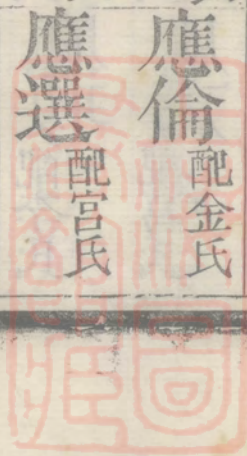 應倫配金氏
應選配宮氏